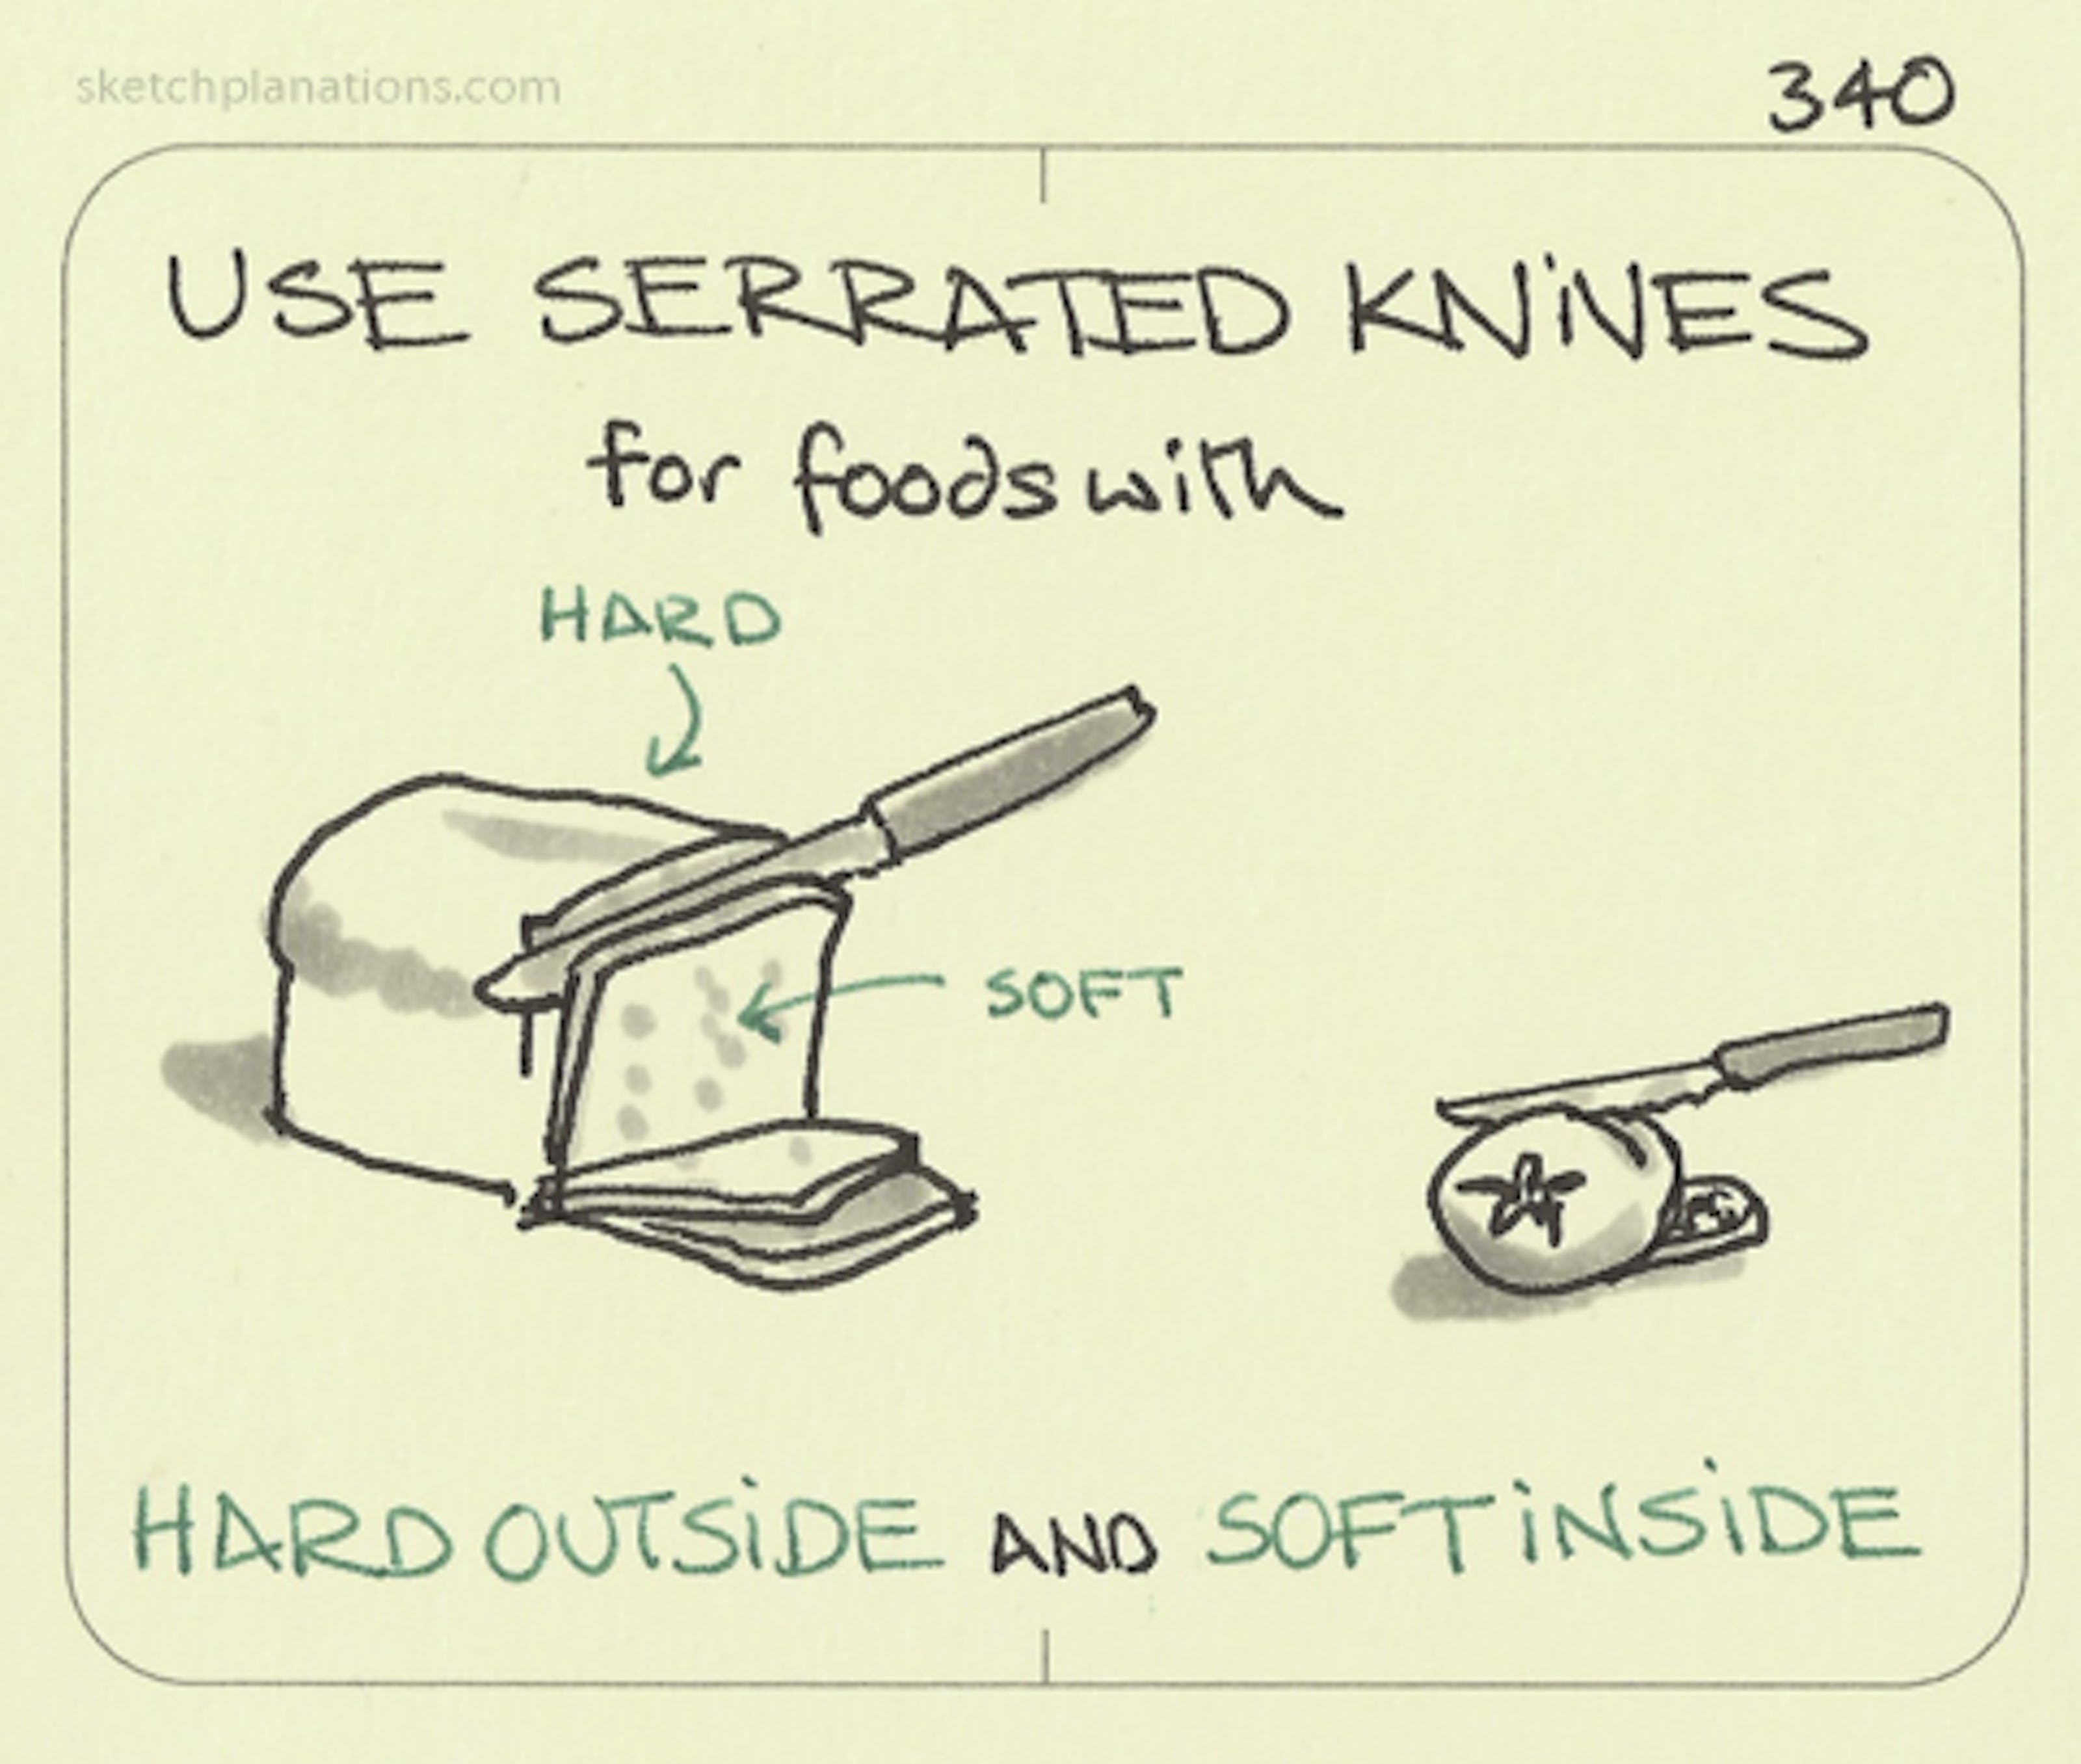 sketchplanations.com
340
USE SERRATED KNiVES
for foods with
HARD
SOFT
HARD OUTSiDE AND SOFT iNSiDE